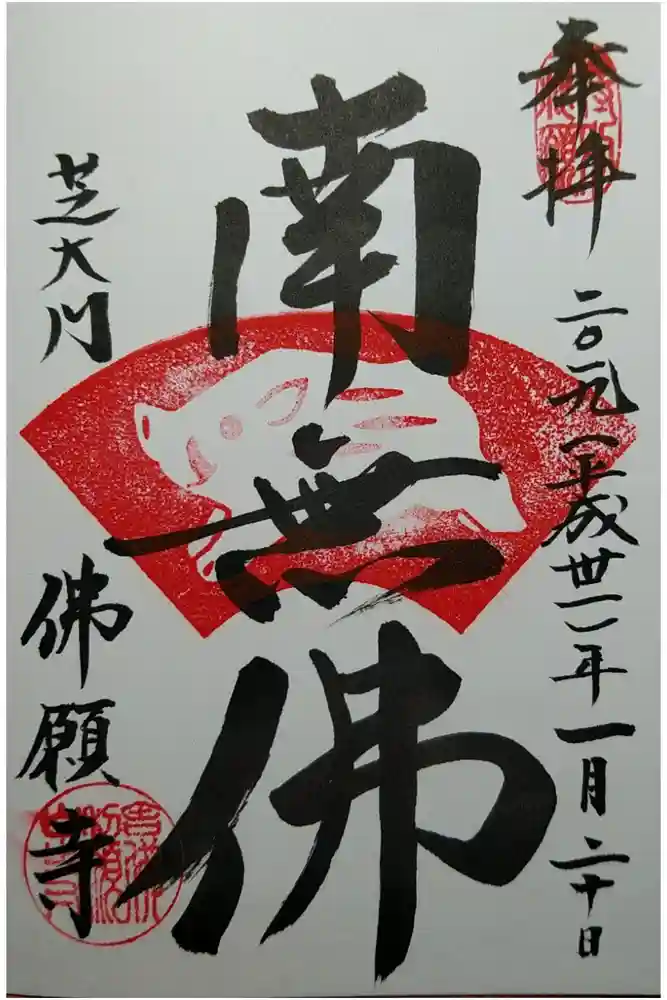 奉拝
二〇一九一平成卅一年一月二十日
南無佛
芝大門
佛願寺